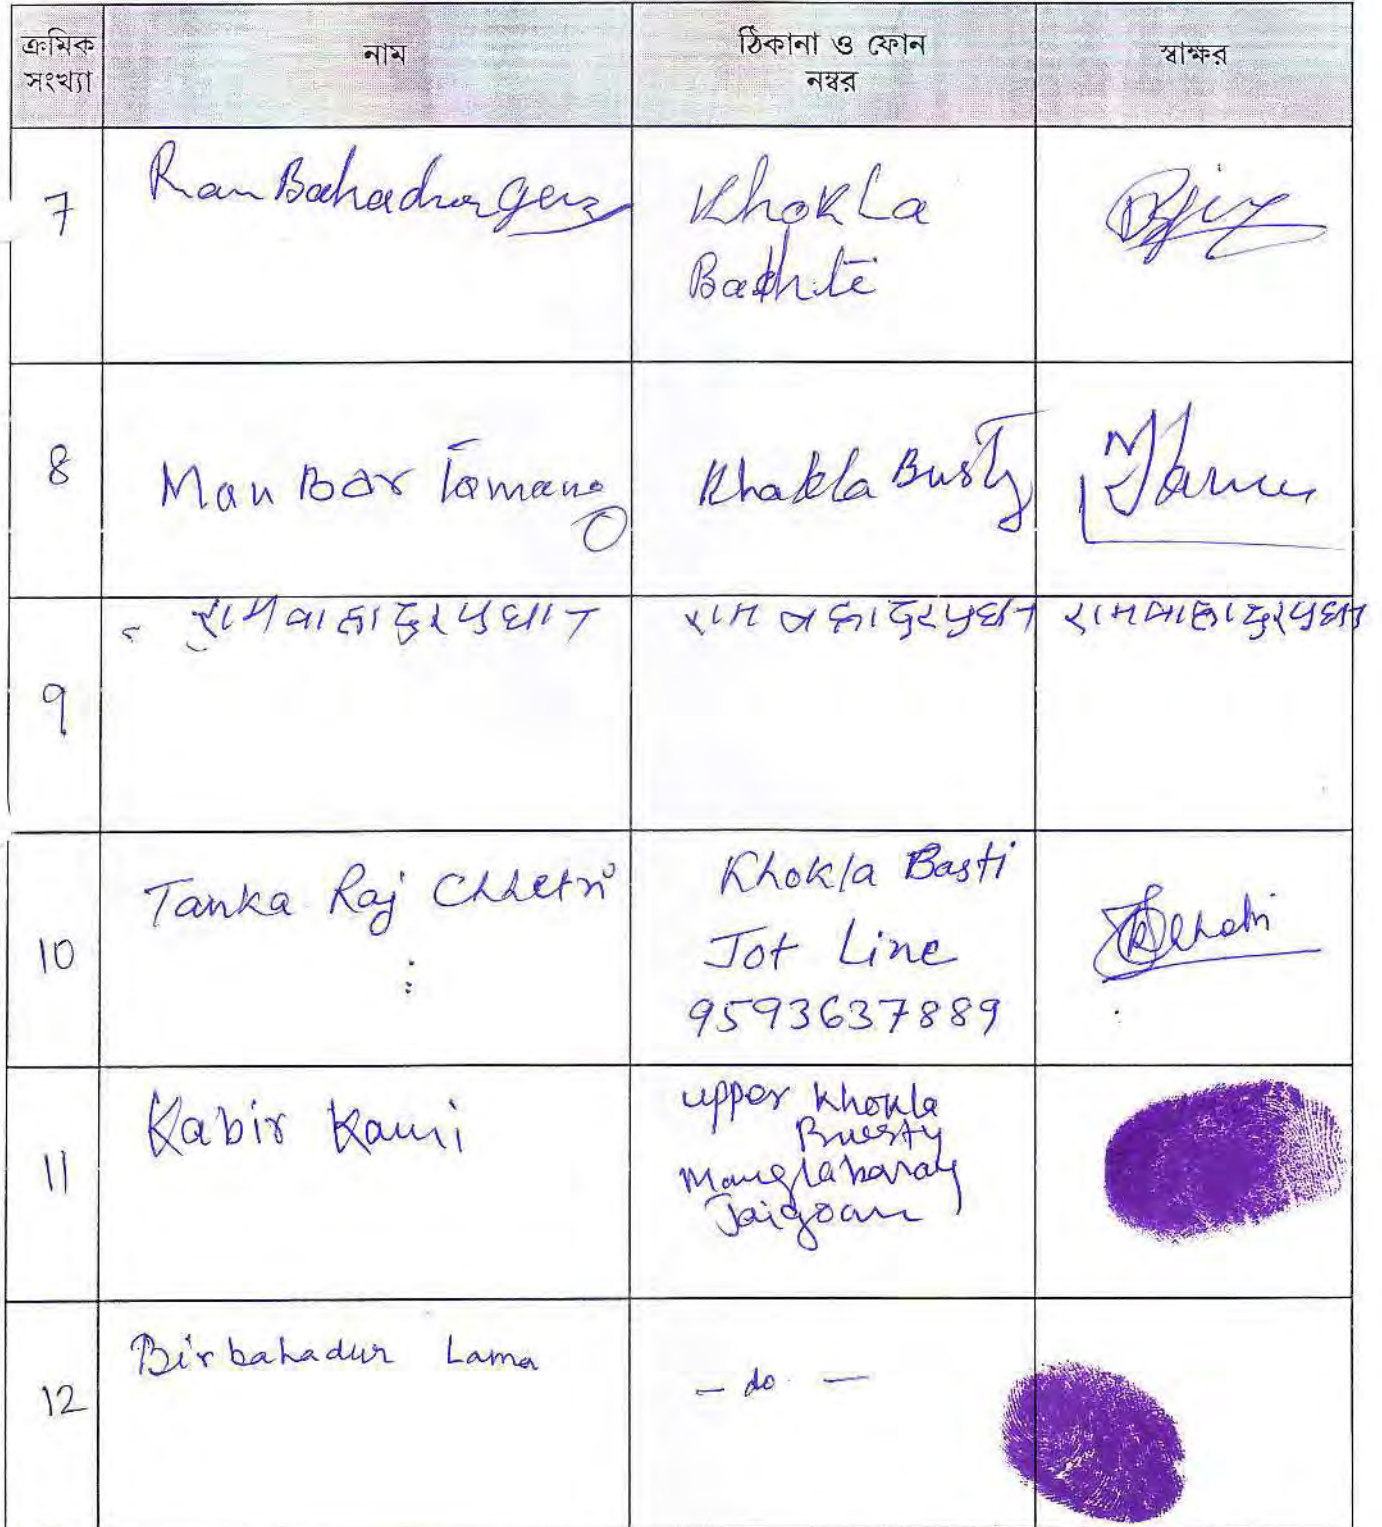 ক্রমিক সংখ্যা নাম ঠিকানা ও ফোন নম্বর স্বাক্ষর
7 Ran Bahadur Khokla
8 Man Bdr Tamang Khakla Busty
9 रामबाहादुरप्रधान राम बहादुरप्रधान रामबाहादुरप्रधान
10 Tanka Raj Chhetri Khokla Basti
Jot Line
9593637889
11 Kabir Kami upper Khokla
Buesty
Manglabaray
Jaigoan
12 Birbahadur Lama — do —